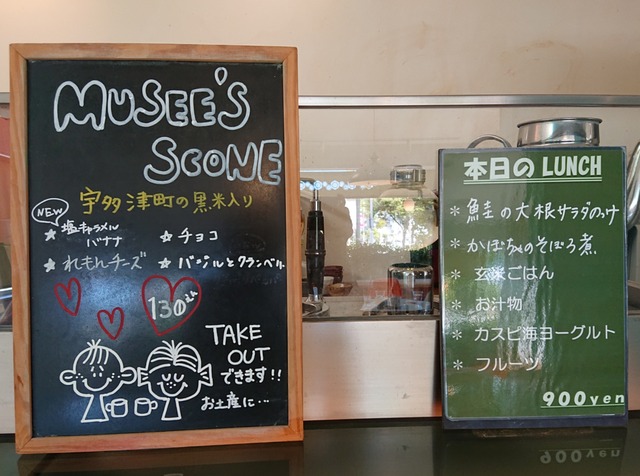 MUSEE'S
SCONE
宇多津町の黒米入り
NEW
★塩キャラメル
バナナ
★チョコ
★れもんチーズ
★バジルとクランベリ
130えん
TAKE
OUT
できます!!
お土産に…
本日の LUNCH
*鮭の大根サラダのっけ
*かぼちゃのそぼろ煮
*玄米ごはん
*お汁物
*カスピ海ヨーグルト
*フルーツ
900yen